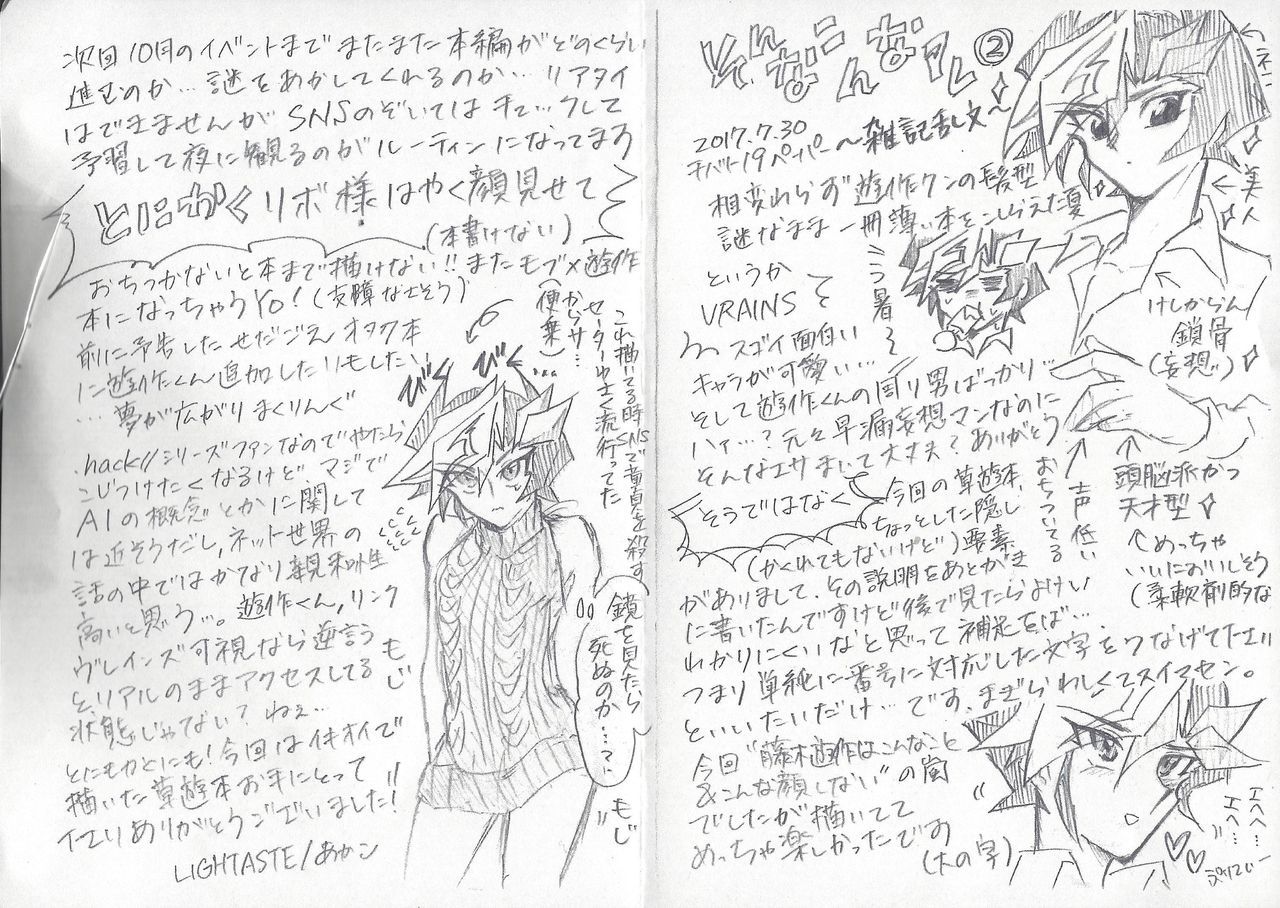 そんなこんなアレ②
2017.7.30
千バト19ペーパー〜雑記乱文〜
相変わらず遊作クンの髪型
謎なまま一冊薄い本をこしらえた夏
というか
VRAINS
スゴイ面白い
キャラが可愛い…
そして遊作くんの周り男ばっかり…
ハァ…?元々早漏妄想マンなのに
そんなエサまいて大丈夫?ありがとう
そうではなく
今回の草遊本、
ちょっとした隠し
(かくれてもないけど)要素
がありまして、その説明をあとがき
に書いたんですけど後で見たらよけい
わかりにくいなと思って補足をば…
つまり単純に番号に対応した文字をつなげてただ
といいたいだけ…です、まぎらわしくてスイマセン。
今回"藤木遊作はこんなこと
&こんな顔しない"の嵐
でしたが描いてて
めっちゃ楽しかったです
(大の字)
美人
けしからん
鎖骨
(妄想)
頭脳派かつ
天才型
声低い
おちついてる
めっちゃ
いいにおいしそう
(柔軟剤的な
エヘヘ…
エヘ…
次回10月のイベントまでまたまた本編がどのくらい
進むのか…謎をあかしてくれるのか…リアタイ
はできませんがSNSのぞいてはキャ…ってして
予習して夜に観るのがルーティンになってます
とにかくリボ様はやく顔見せて
(本書けない)
おちつかないと本まで描けない!!またモブ×遊作
本になっちゃうYO!(支障なさそう)
前に予告したせだごえんオタク本
に遊作くん追加したりもしたい
…夢が広がりまくりんぐ
.hack//シリーズファンなのでやたら
こじつけたくなるけどマジで
AIの概念とかに関して
は近そうだし、ネット世界の
話の中ではかなり親和性
高いと思う…。遊作くん,リンク
ヴレインズ可視なら逆言う
と、リアルのままアクセスしてる
状態じゃない?ねぇ…
とにもかくにも!今回はイキオイで
描いた草遊本お手にとって
イタダキありがとうございました!!
LIGHTASTE/あかン
これ描いてる時SNSで童貞を殺す
セーターわさく流行ってた
(便乗)
びく
びく…
鎖を見たら
死ぬのか…
もじ
もじ